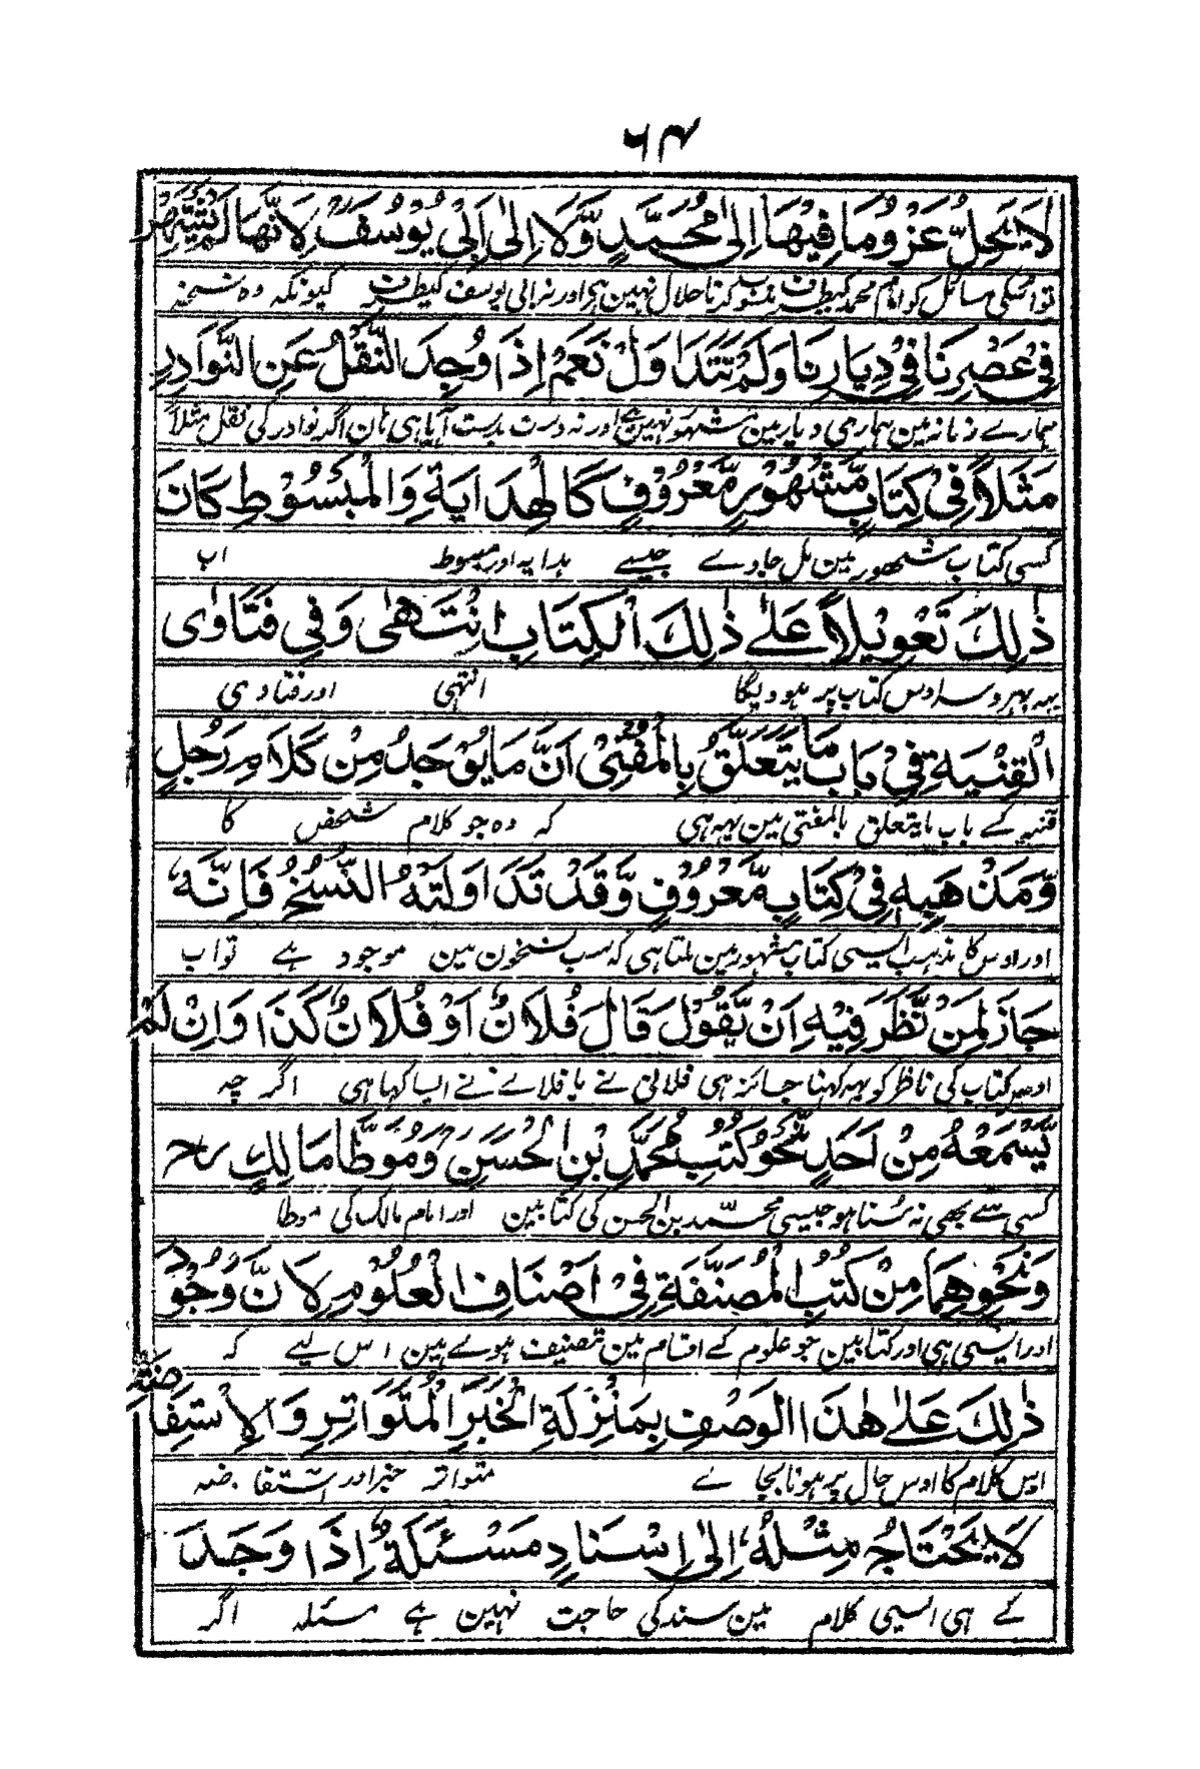 ۶۴
لَا يَحِلُّ عَزْوُ مَا فِيْهَا اِلٰى مُحَمَّدٍ وَّلَا اِلٰى اَبِىْ يُوْسُفَ لِاَنَّهَا لَمْ تَشْتَهِرْ
تو اسکی مسائل کو امام محمد کیطرف منسوب کرنا حلال نہین ہی اور نہ ابی یوسف کیطرف کیونکہ وہ نسخہ
فِىْ عَصْرِنَا فِىْ دِيَارِنَا وَلَمْ تَتَدَاوَلْ نَعَمْ اِذَا وُجِدَ النَّقْلُ عَنِ النَّوَادِرِ
ہمارے زمانہ مین ہماری دیار مین مشہور نہین ہی اور نہ دست بدست آیا ہی ہان اگر نوادر کی نقل مثلاً
مَثَلًا فِىْ كِتَابٍ مَّشْهُوْرٍ مَّعْرُوْفٍ كَالْهِدَايَةِ وَالْمَبْسُوْطِ كَانَ
کسی کتاب مشہور مین مل جاوے جیسے ہدایہ اور مبسوط اب
ذٰلِكَ تَعْوِيْلًا عَلٰى ذٰلِكَ الْكِتَابِ اِنْتَهٰى وَفِىْ فَتَاوٰى
یہہ بہروسا اوس کتاب پر ہوویگا انتہی اور فتاوی
الْقِنْيَةِ فِىْ بَابِ مَا يَتَعَلَّقُ بِالْمُفْتِىْ اَنَّ مَا يُوْجَدُ مِنْ كَلَامِ رَجُلٍ
قنیہ کے باب ما یتعلق بالمفتی مین یہہ ہی کہ وہ جو کلام شخص کا
وَّمَذْهَبِهٖ فِىْ كِتَابٍ مَّعْرُوْفٍ وَّقَدْ تَدَاوَلَتْهُ النُّسَخُ فَاِنَّهٗ
اور اوس کا مذہب ایسی کتاب مشہور مین ملتا ہی کہ سب نسخون مین موجود ہے تو اب
جَازَ لِمَنْ نَّظَرَ فِيْهِ اَنْ يَّقُوْلَ قَالَ فُلَانٌ اَوْ فُلَانٌ كَذَا وَاِنْ لَّمْ
اوس کتاب کی ناظر کو یہہ کہنا جائز ہی فلانی نے یا فلانے نے ایسا کہا ہی اگر چہ
يَّسْمَعْهُ مِنْ اَحَدٍ نَّحْوُ كُتُبِ مُحَمَّدِ بْنِ الْحَسَنِ وَمُوَطَّا مَالِكٍ رح
کسی سے بھی نہ سُنا ہو جیسی محمد بن الحسن کی کتابین اور امام مالک کی موطا
وَنَحْوِهِمَا مِنْ كُتُبِ الْمُصَنَّفَةِ فِىْ اَصْنَافِ الْعُلُوْمِ لِاَنَّ وُجُوْدَ
اور ایسی ہی اور کتابین جو علوم کے اقسام مین تصنیف ہوے ہین اس لیے کہ
ذٰلِكَ عَلٰى هٰذَا الْوَصْفِ بِمَنْزِلَةِ الْخَبَرِ الْمُتَوَاتِرِ وَالْاِسْتِفَاضَةِ
اس کلام کا اوس حال پر ہونا بجائے متواتر خبر اور استفاضہ
لَا يَحْتَاجُ مِثْلُهٗ اِلٰى اِسْنَادِ مَسْئَلَةٍ اِذَا وَجَدَ
کے ہی ایسی کلام مین سند کی حاجت نہین ہے مسئلہ اگر